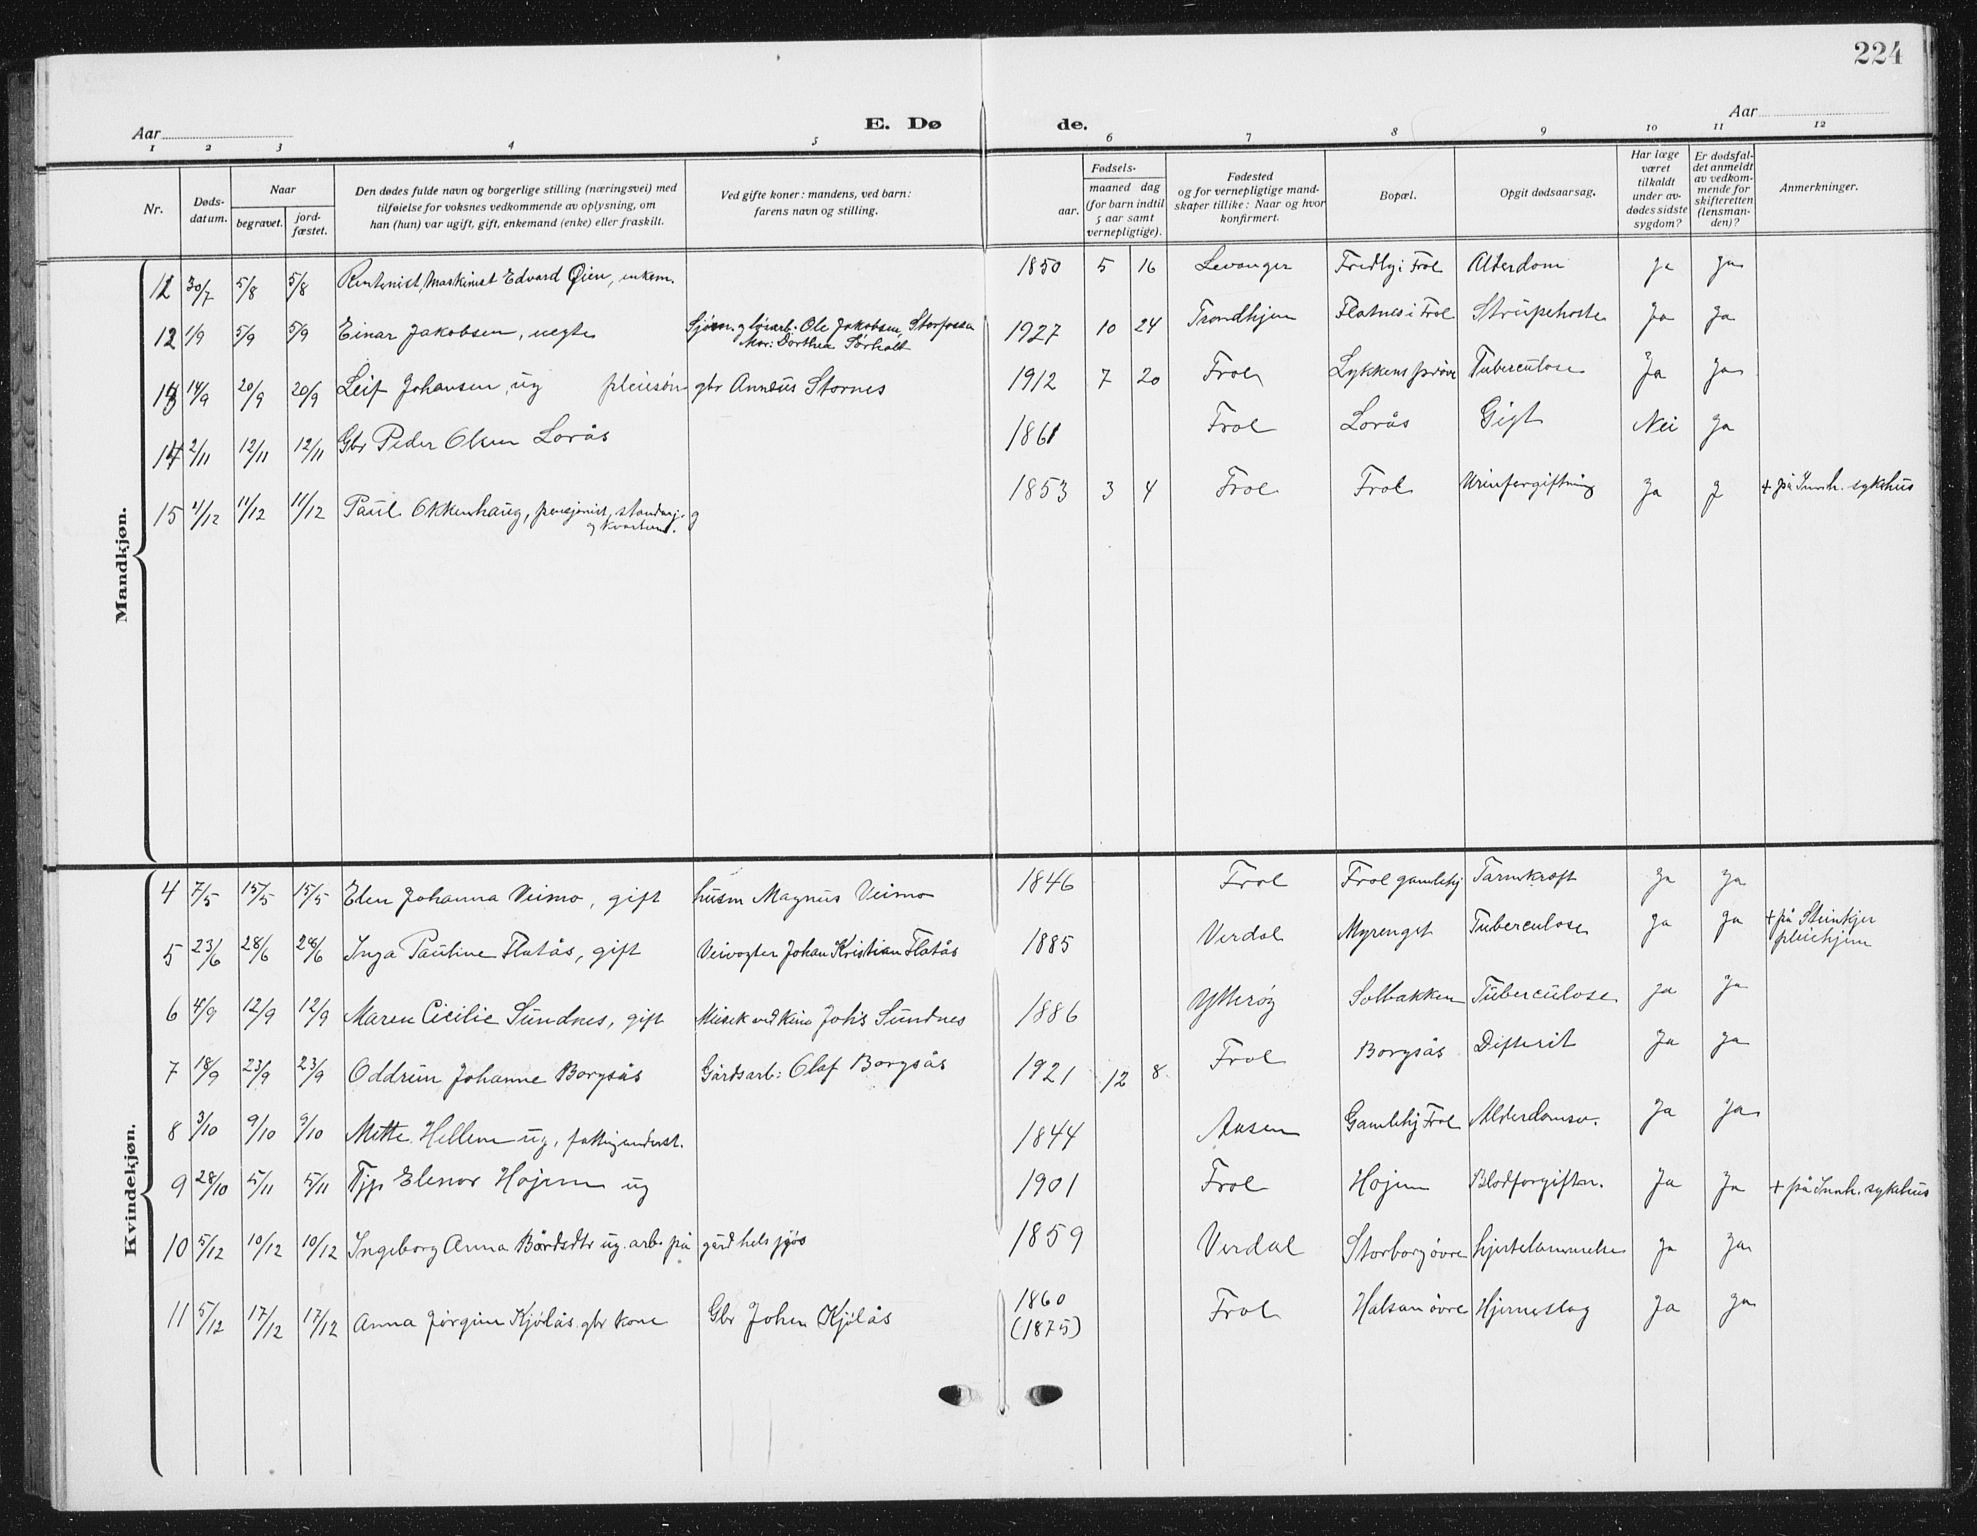 224
Aar
E. Dø de.
Aar
1 2 3 4 5 6 7 8 9 10 11 12
Nr.
Døds-
datum.
Naar
begravet.
jord-
fæstet.
Den dødes fulde navn og borgerlige stilling (næringsvei) med
tilføielse for voksnes vedkommende av oplysning, om
han (hun) var ugift, gift, enkemand (enke) eller fraskilt.
Ved gifte koner: mandens, ved barn:
farens navn og stilling.
Fødsels-
aar.
maaned dag
(for barn indtil
5 aar samt
vernepligtige).
Fødested
og for vernepligtige mand-
skaper tillike: Naar og hvor
konfirmert.
Bopæl.
Opgit dødsaarsag.
Har læge
været
tilkaldt
under av-
dødes sidste
sygdom?
Er dødsfal-
det anmeldt
av vedkom-
mende for
skifteretten
(lensman-
den)?
Anmerkninger.
Mandkjøn.
30/7 5/8 5/8 Rentenist, Maskinist Edvard Øien, enkem. 1850 5 16 Levanger Fredly i Frol Alderdom ja ja
12 1/9 5/9 5/9 Einar Jakobsen, uegte Sjøm. g løsarb. Ole Jakobsen, Storfossen 1927 10 24 Trondhjem Flatnes i Frol Strupehoste Ja Ja
Mor: Dorthea Sørholt
13 14/9 20/9 20/9 Leif Johansen, ug pleiesøn gbr Annæus Stornes 1912 7 20 Frol Lykkensprøve Tuberculose Ja Ja
14 2/11 12/11 12/11 Gbr Peder Olsen Lorås 1861 Frol Lorås Gigt Nei Ja
15 4/12 11/12 11/12 Paul Okkenhaug, pensjonist, g 1853 3 4 Frol Frol Urinforgiftning Ja J + på Innh. sykehus
Kvindekjøn.
4 7/5 15/5 15/5 Elen Johanna Veimo, gift husm Magnus Veimo 1846 Frol Frol gamlehj Tarmkræft Ja Ja
5 23/6 28/6 28/6 Inga Pauline Flatås, gift Veivogter Johan Kristian Flatås 1885 Verdal Myrenget Tuberculose Ja Ja + på Steinkjer
pleiehjem
6 4/9 12/9 12/9 Maren Cicilie Sundnes, gift Musik ved Kino Johs Sundnes 1886 Ytterøy Solbakken Tuberculose Ja Ja
7 18/9 23/9 23/9 Oddrun Johanne Borgsås Gårdsarb: Olaf Borgsås 1921 12 8 Frol Borgsås Difterit Ja Ja
8 3/10 9/10 9/10 Mette Hellem ug, fattigunderst. 1844 Aasen Gamlehj Frol Alderdomsv. Ja Ja
9 28/10 5/11 5/11 Tjp Elenor Hojem ug 1901 Frol Hojem Blodforgiftn. Ja Ja + på Innh. sykehus
10 5/12 10/12 10/12 Ingeborg Anna Bårdsdtr ug. arb. på gård 1859 Verdal Storborg øvre hjertelammelse Ja Ja
11 5/12 17/12 17/12 Anna Jørgine Kjølås gbr kone Gbr Johan Kjølås 1860 Frol Halsan øvre Hjerneslag Ja Ja
(1875)